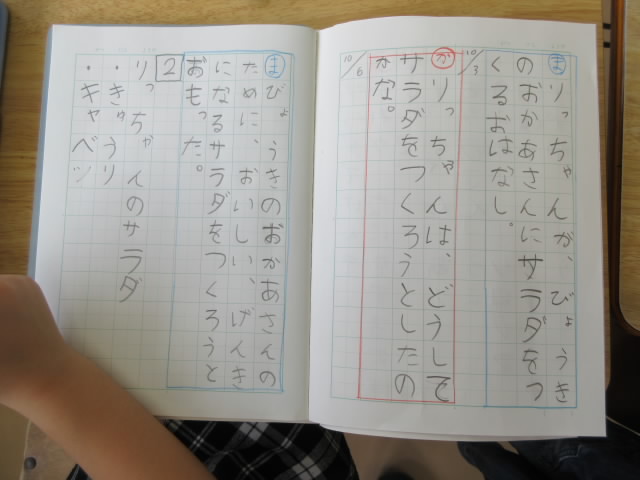 まりっちゃんが、びょうき
のおかあさんにサラダをつ
くるおはなし。
10/3
かりっちゃんは、どうして
サラダをつくろうとしたの
かな。
10/6
まびょうきのおかあさんの
ために、おいしい、げんき
になるサラダをつくろうと
おもった。
2
りっちゃんのサラダ
・きゅうり
・キャベツ